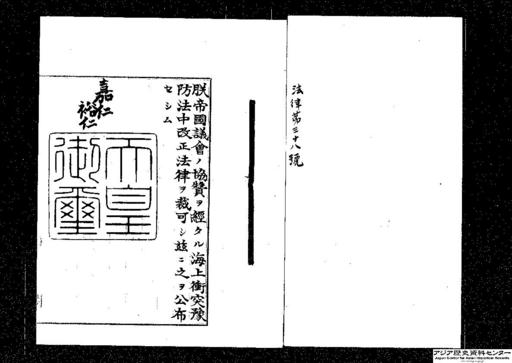 法律第三十八號
朕帝國議會ノ協贊ヲ經タル海上衝突豫
防法中改正法律ヲ裁可シ玆ニ之ヲ公布
セシム
嘉仁
裕仁
天皇
御璽
アジア歴史資料センター
Japan Center for Asian Historical Records